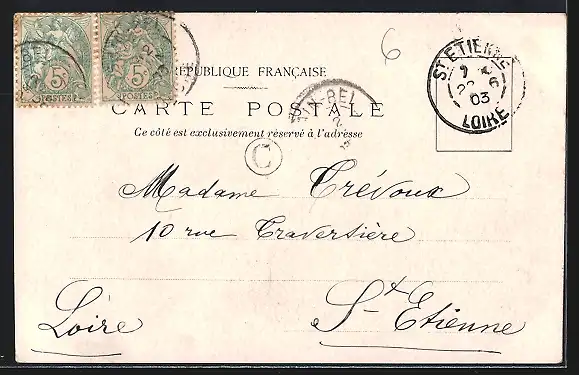 6
RÉPUBLIQUE FRANÇAISE
CARTE POSTALE
Ce côté est exclusivement réservé à l'adresse
5c 5c
POSTES POSTES
ST ETIENNE
22 6
03
LOIRE
C
Madame Trévoux
10 rue Traversière
St Etienne
Loire